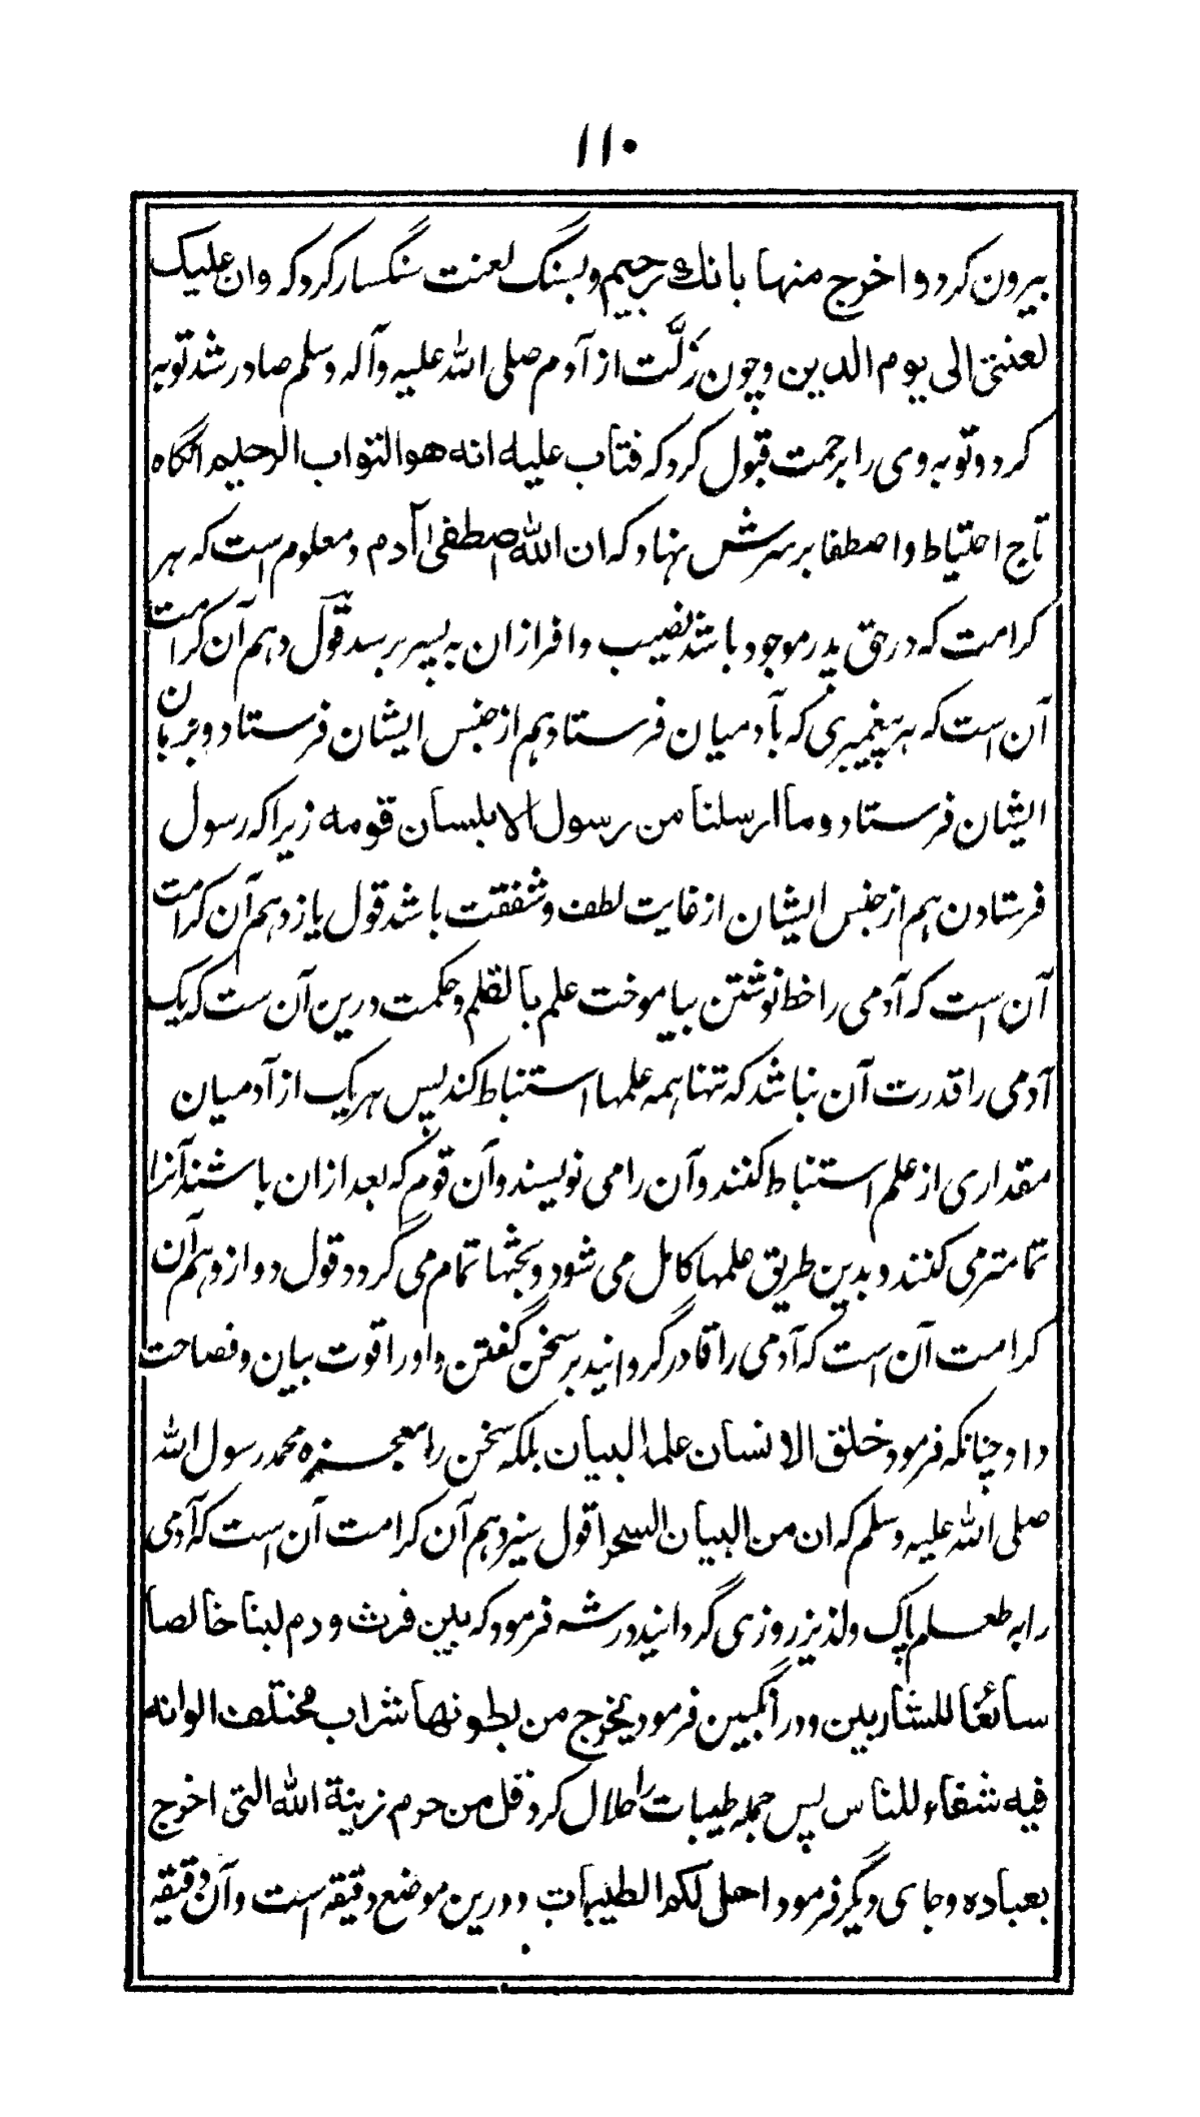 ۱۱۰
بیرون کرد واخرج منها بانك رجیم وبسنگ لعنت سنگسار کرد که وان علیک
لعنتی الی یوم الدین وچون زَلَّت از آدم صلی الله علیه وآله وسلم صادر شد توبه
کرد وتوبه وی را برحمت قبول کرد که فتاب علیه انه هو التواب الرحیم انگاه
تاج احتیاط واصطفا بر سرش نهاد که ان الله اصطفی آدم ومعلوم است که هر
کرامت که در حق پدر موجود باشد نصیب وافر ازان به پسر برسد قول دهم آن کرامت
آن است که هر پیغمبری که بآدمیان فرستاد هم از جنس ایشان فرستاد وبزبان
ایشان فرستاد وما ارسلنا من رسول الا بلسان قومه زیراکه رسول
فرستادن هم از جنس ایشان از غایت لطف وشفقت باشد قول یازدهم آن کرامت
آن است که آدمی را خط نوشتن بیاموخت علم بالقلم وحکمت درین آن ست که یک
آدمی را قدرت آن نباشد که تنها همه علمها استنباط کند پس هر یک از آدمیان
مقداری از علم استنباط کنند وآن را می نویسند وآن قوم که بعد ازان باشند آنرا
تمامتر می کنند وبدین طریق علمها کامل می شود وبحثها تمام می گردد قول دوازدهم آن
کرامت آن است که آدمی را قادر گردانید بر سخن گفتن واورا قوت بیان وفصاحت
داد چنانکه فرمود خلق الانسان علمه البیان بلکه سخن را معجزه محمد رسول الله
صلی الله علیه وسلم که ان من البیان السحرا قول سیزدهم آن کرامت آن است که آدمی
را به طعام پاک ولذیذ روزی گردانید در شه فرمود که بین فرث ودم لبنا خالصا
سائغا للشاربین ودر انگبین فرمود یخرج من بطونها شراب مختلف الوانه
فیه شفاء للناس پس جمله طیبات را حلال کرد قل من حرم زینة الله التی اخرج
بعباده وجای دیگر فرمود احل لکم الطیبات ودرین موضع دقیقه است وآن دقیقه